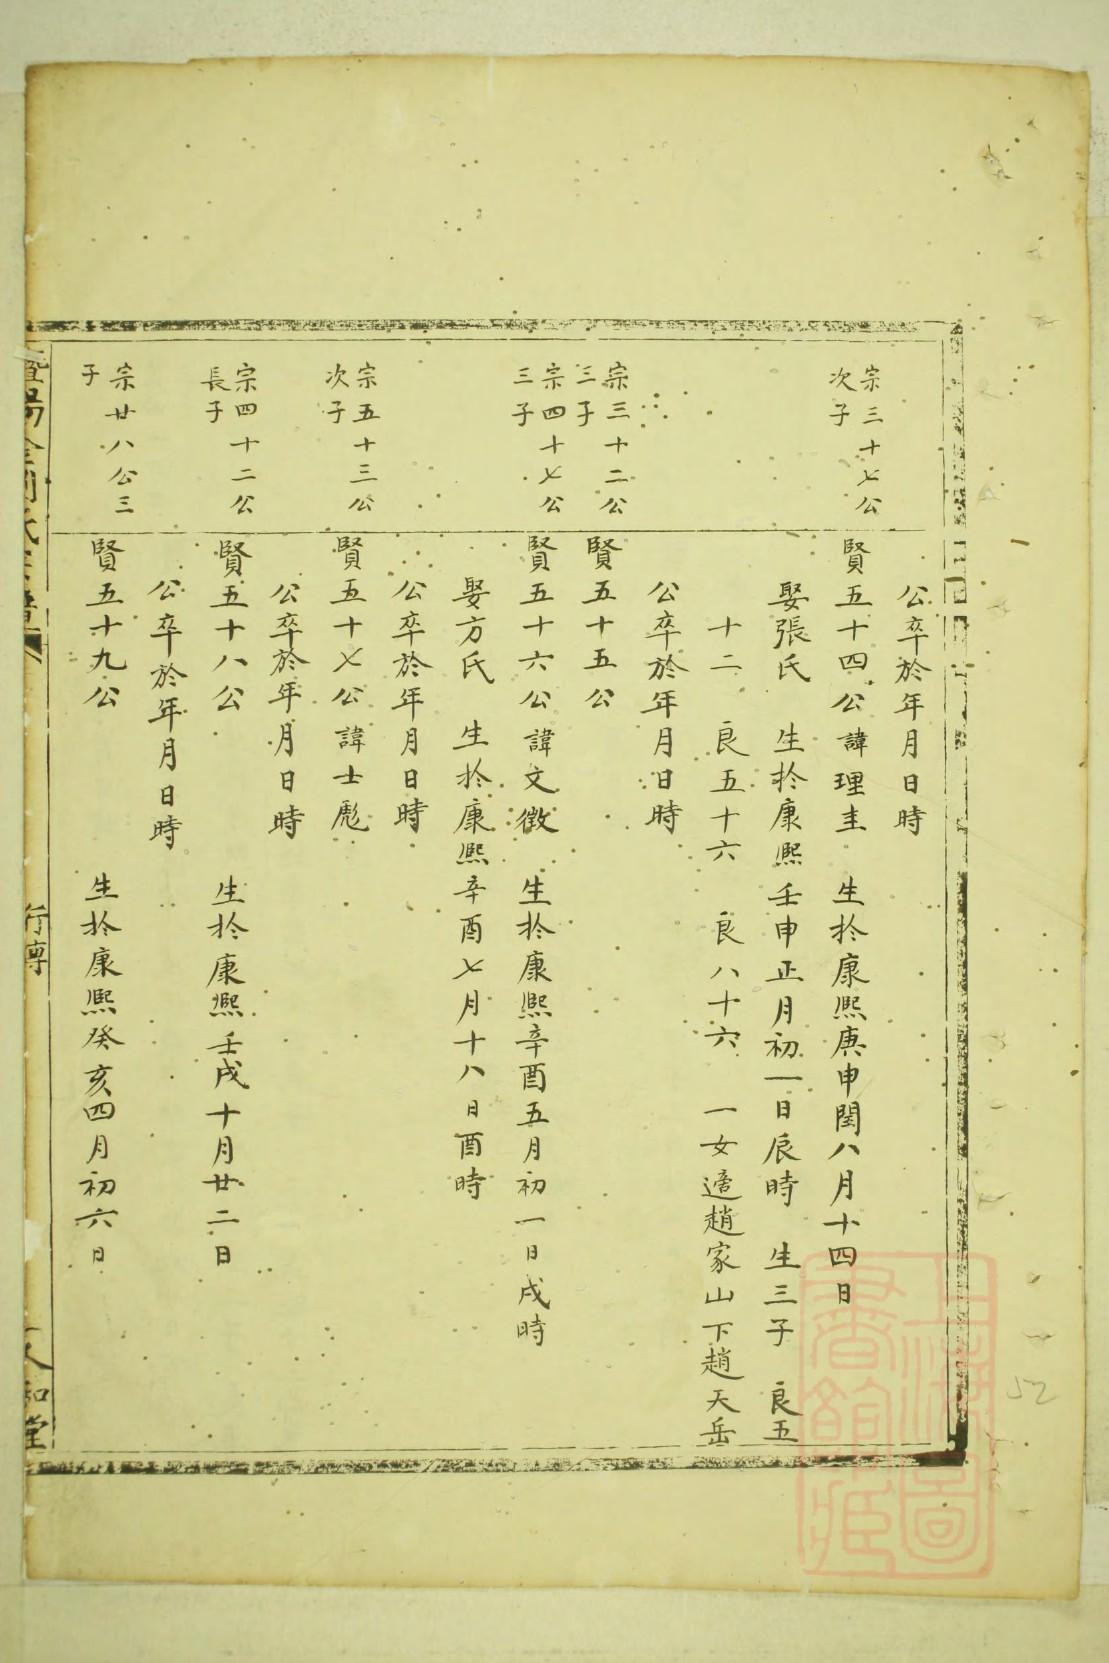 公卒於年月日時
宗三十七公
次子
賢五十四公諱理圭　生於康熙庚申閏八月十四日
娶張氏　生於康熙壬申正月初一日辰時　生三子　良五
十二　良五十六　良八十六　一女適趙家山下趙天岳
公卒於年月日時
宗三十二公
三子
賢五十五公
宗四十七公
三子
賢五十六公諱文徵　生於康熙辛酉五月初一日戌時
娶方氏　生於康熙辛酉七月十八日酉時
公卒於年月日時
宗五十三公
次子
賢五十七公諱士彪
公卒於年月日時
宗四十二公
長子
賢五十八公　生於康熙壬戌十月廿二日
公卒於年月日時
宗廿八公三
子
賢五十九公　生於康熙癸亥四月初六日
行傳
上海圖
書館藏
52